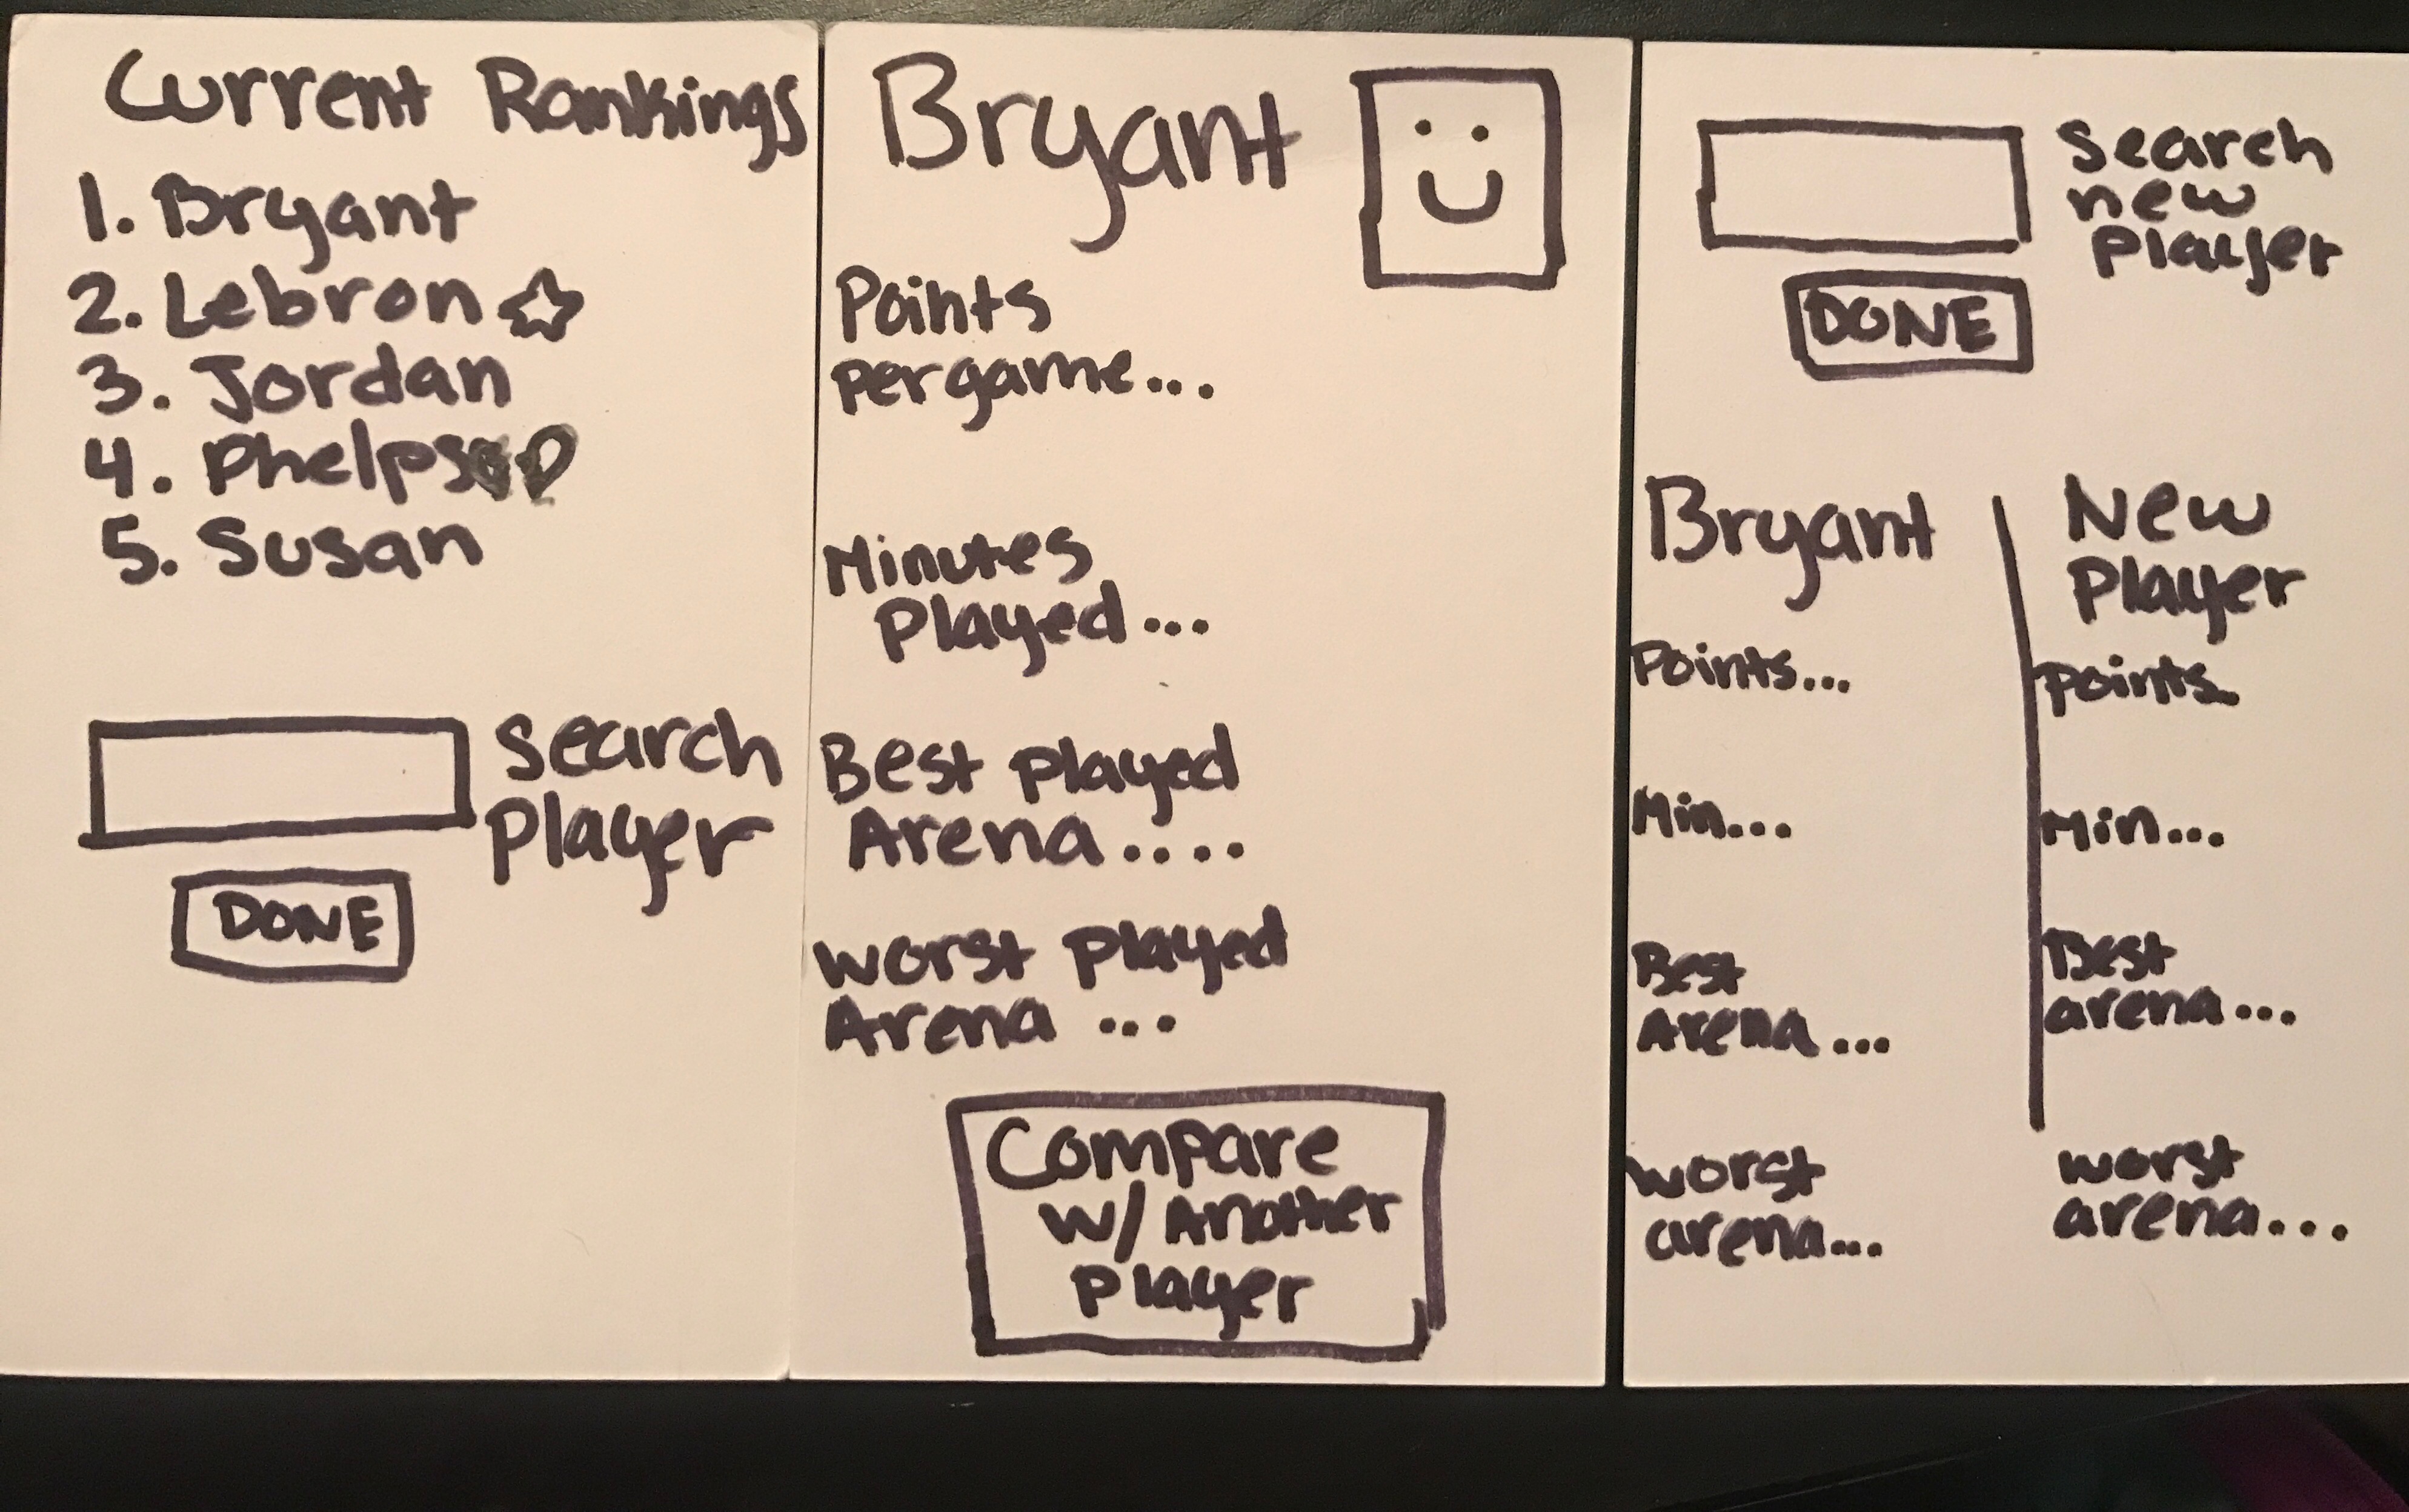 Current Rankings
1. Bryant
2. Lebron
3. Jordan
4. Phelps
5. Susan
Search
Player
DONE
Bryant
Points
per game...
Minutes
Played...
Best Played
Arena....
Worst Played
Arena ...
Compare
w/ Another
Player
Search
new
Player
DONE
Bryant
Points...
Min...
Best
Arena...
worst
arena...
New
Player
Points..
Min...
Best
arena...
worst
arena...